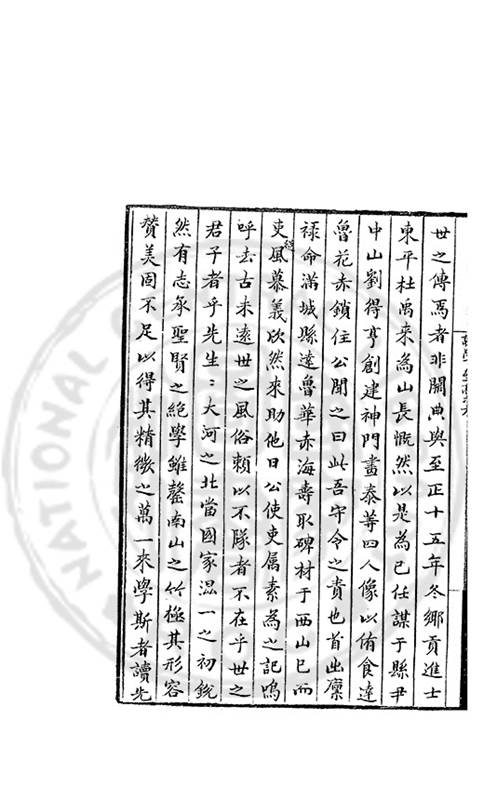 世之傳焉者非闕典與至正十五年冬鄉貢進士
東平杜禹来為山長慨然以是為己任謀于縣尹
中山劉得亨創建神門畫泰䓁四人像以侑食達
魯花赤鎖住公聞之曰此吾守令之責也首出廩
祿命滿城縣達魯華赤海壽取碑材于西山已而
吏風慕義欣然来助他日公使吏属素為之記嗚
呼去古未遠世之風俗頼以不隊者不在乎世之
君子者乎先生：大河之北當國家混一之初銳
然有志承聖賢之絶學雖罄南山之竹極其形容
賛美固不足以得其精微之萬一来學斯者讀先
NATIONAL